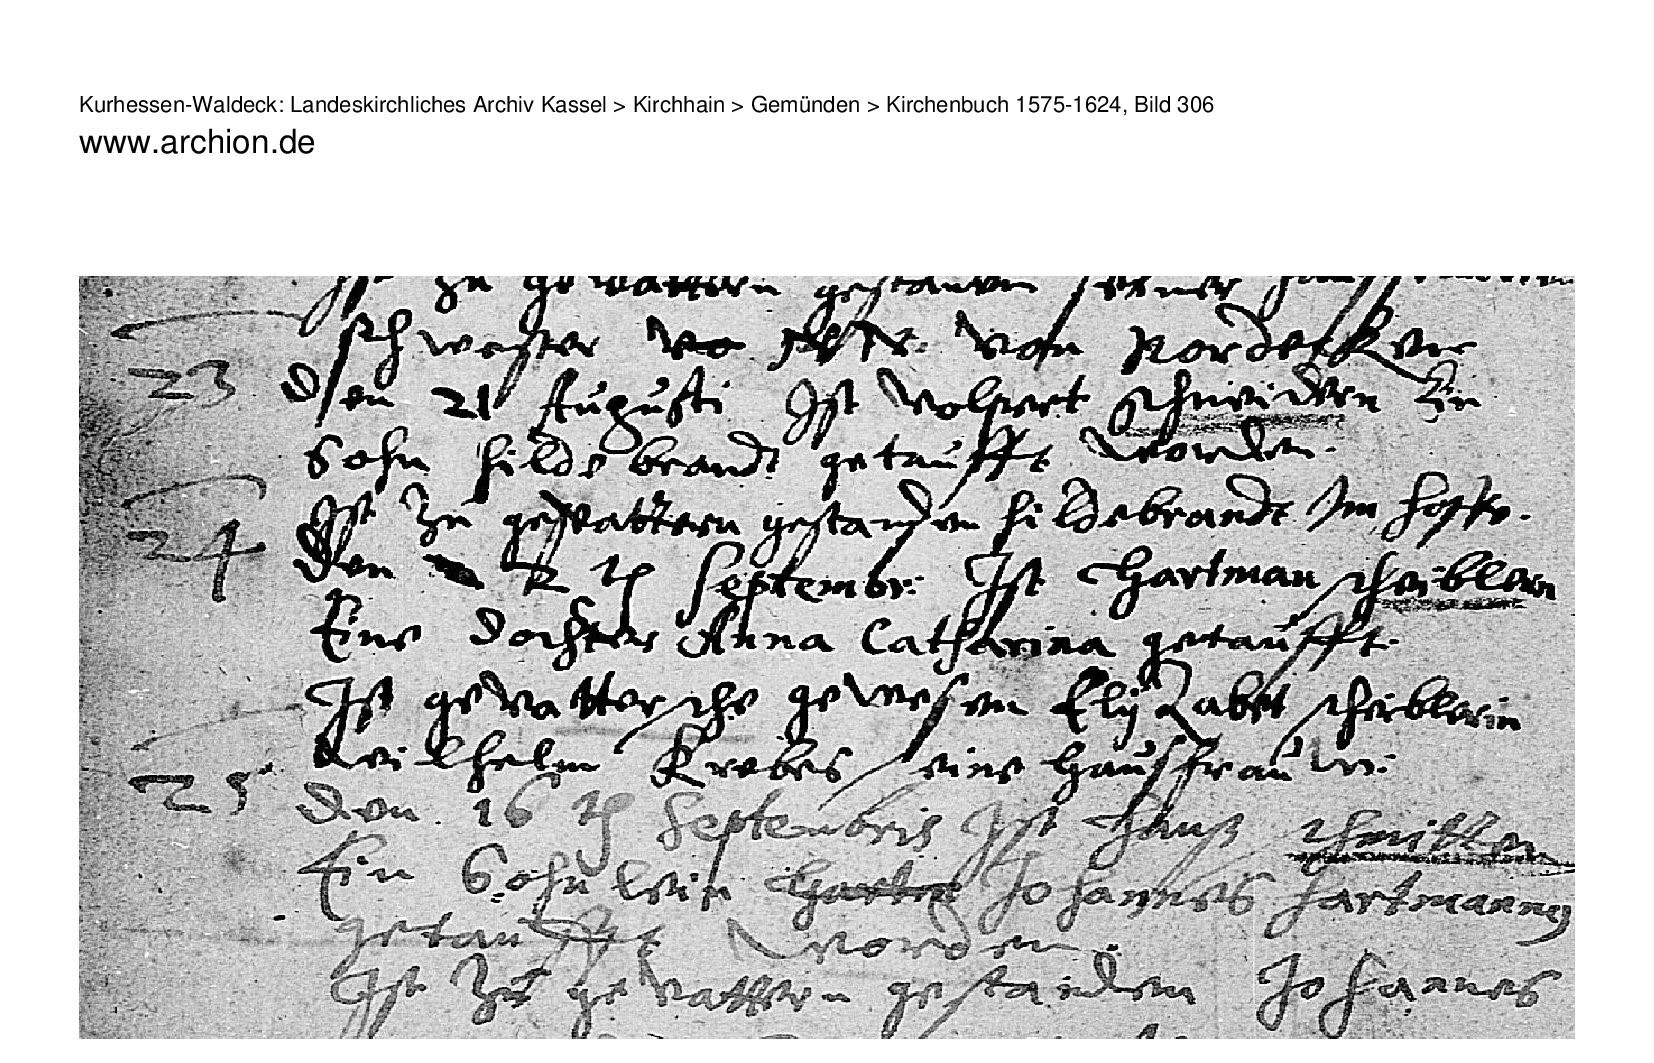 Kurhessen-Waldeck: Landeskirchliches Archiv Kassel > Kirchhain > Gemünden > Kirchenbuch 1575-1624, Bild 306
www.archion.de
Ist zu gevattern gestanden seiner
schwester von Nordecken
23 Den 21 Augusti Ist Volpert Schneidern Ein
Sohn Hildebrandt getaufft worden.
Ist zu gevattern gestanden Hildebrandt Im Hoffe.
24 Den 2 Septembr: Ist Hartman scheiblern
Eine dochter Anna Catharina getaufft.
Ist gevattersche gewesen Elyzabet scheiblerin
Wilhelm Krebes seine Hausfrauw:
25 Den 16 Septembris Ist Hanß schmitten
Ein Sohnlein Johannes Hartmannus
getaufft worden.
Ist zu gevattern gestanden Johannes